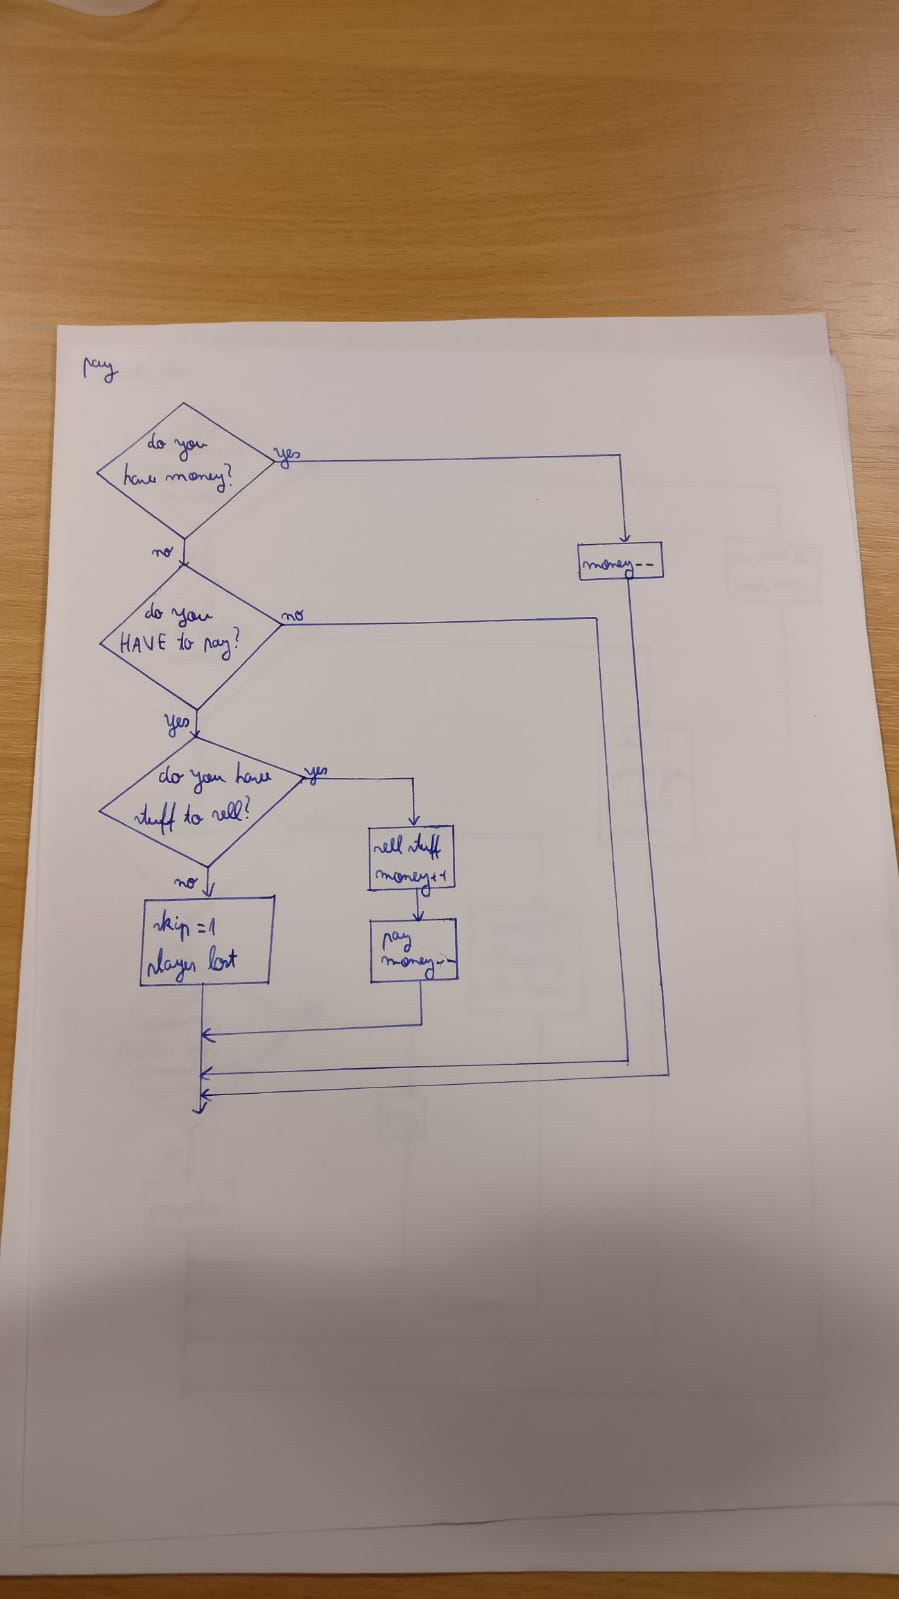 pay
do you
have money?
yes
no
money--
do you
HAVE to pay?
no
yes
do you have
stuff to sell?
yes
no
sell stuff
money++
skip=1
player lost
pay
money--